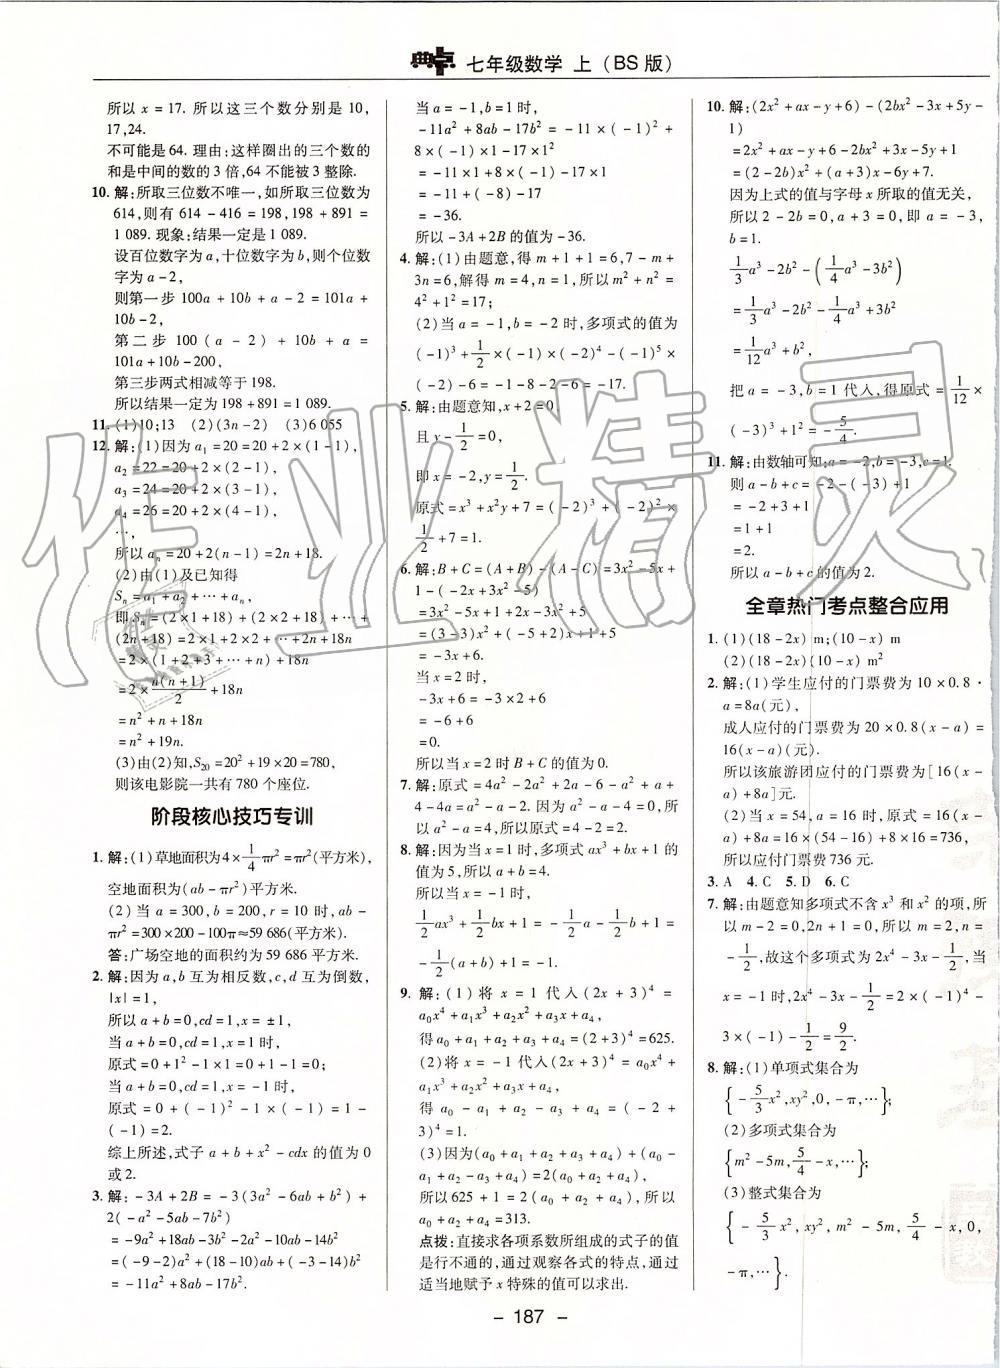 典点 七年级数学 上(BS版)
所以 x = 17. 所以这三个数分别是 10,
17,24.
不可能是 64. 理由:这样圈出的三个数的
和是中间的数的 3 倍,64 不能被 3 整除.
10. 解:所取三位数不唯一,如所取三位数为
614,则有 614－416＝198,198＋891＝
1 089. 现象:结果一定是 1 089.
设百位数字为 a,十位数字为 b,则个位数
字为 a－2,
则第一步 100a＋10b＋a－2＝101a＋
10b－2,
第二步 100(a－2)＋10b＋a＝
101a＋10b－200,
第三步两式相减等于 198.
所以结果一定为 198＋891＝1 089.
11. (1)10;13 (2)(3n＋1) (3)6 055
12. 解:(1)因为 a₁＝20＝20＋2×(1－1),
a₂＝22＝20＋2×(2－1),
a₃＝24＝20＋2×(3－1),
a₄＝26＝20＋2×(4－1),
…,
所以 aₙ＝20＋2(n－1)＝2n＋18.
(2)由(1)及已知得
Sₙ＝a₁＋a₂＋…＋aₙ,
即 Sₙ＝(2×1＋18)＋(2×2＋18)＋
(2×3＋18)＋…＋(2×n＋18)
＝2×(1＋2＋3＋…＋n)＋18n
＝2×n(n＋1)/2＋18n
＝n²＋n＋18n
＝n²＋19n.
(3)由(2)知,S₂₀＝20²＋19×20＝780,
则该电影院一共有 780 个座位.
阶段核心技巧专训
1. 解:(1)草地面积为4×1/4πr²＝πr²(平方米),
空地面积为(ab－πr²)平方米.
(2)当 a＝300,b＝200,r＝10 时,ab－
πr²＝300×200－100π≈59 686(平方米).
答:广场空地的面积约为 59 686 平方米.
2. 解:因为 a,b 互为相反数,c,d 互为倒数,
|x|＝1,
所以 a＋b＝0,cd＝1,x＝±1,
当 a＋b＝0,cd＝1,x＝1 时,
原式＝0＋1²－1×1＝0＋1－1＝0;
当 a＋b＝0,cd＝1,x＝－1 时,
原式＝0＋(－1)²－1×(－1)＝1－
(－1)＝2.
综上所述,式子 a＋b＋x²－cdx 的值为 0
或2.
3. 解:－3A＋2B＝－3(3a²－6ab＋b²)＋
2(－a²－5ab－7b²)
＝－9a²＋18ab－3b²－2a²－10ab－14b²
＝(－9－2)a²＋(18－10)ab＋(－3－14)b²
＝－11a²＋8ab－17b².
当 a＝－1,b＝1 时,
－11a²＋8ab－17b²＝－11×(－1)²＋
8×(－1)×1－17×1²
＝－11×1＋8×(－1)－17×1
＝－11＋(－8)－17
＝－36.
所以－3A＋2B 的值为－36.
4. 解:(1)由题意,得 m＋1＋1＝6,7－m＋
3n＝6,解得 m＝4,n＝1,所以 m²＋n²＝
4²＋1²＝17;
(2)当 a＝－1,b＝－2 时,多项式的值为
(－1)³＋1/2×(－1)×(－2)⁴－(－1)⁵×
(－2)－6＝－1－8－2－6＝－17.
5. 解:由题意知,x＋2＝0,
且 y－1/2＝0,
即 x＝－2,y＝1/2.
原式＝x³＋x²y＋7＝(－2)³＋(－2)²×
1/2＋7＝1.
6. 解:B＋C＝(A＋B)－(A－C)＝3x²－5x＋
1－(－2x＋3x²－5)
＝3x²－5x＋1＋2x－3x²＋5
＝－3x＋6.
当 x＝2 时,
－3x＋6＝－3×2＋6
＝－6＋6
＝0.
所以当 x＝2 时 B＋C 的值为 0.
7. 解:原式＝4a²－2a²＋2a－6－a²＋a＋
4－4a＝a²－a－2. 因为 a²－a－4＝0,所
以 a²－a＝4,所以原式＝4－2＝2.
8. 解:因为当 x＝1 时,多项式 ax³＋bx＋1 的
值为5,所以 a＋b＝4.
所以当 x＝－1 时,
1/2ax³＋1/2bx＋1＝－1/2a－1/2b＋1＝
－1/2(a＋b)＋1＝－1.
9. 解:(1)将 x＝1 代入(2x＋3)⁴＝
a₀x⁴＋a₁x³＋a₂x²＋a₃x＋a₄,
得 a₀＋a₁＋a₂＋a₃＋a₄＝(2＋3)⁴＝625.
(2)将 x＝－1 代入(2x＋3)⁴＝a₀x⁴＋
a₁x³＋a₂x²＋a₃x＋a₄,
得 a₀－a₁＋a₂－a₃＋a₄＝(－2＋
3)⁴＝1.
(3)因为(a₀＋a₁＋a₂＋a₃＋a₄)＋(a₀－
a₁＋a₂－a₃＋a₄)＝2(a₀＋a₂＋a₄),
所以 625＋1＝2(a₀＋a₂＋a₄),所以
a₀＋a₂＋a₄＝313.
点拨:直接求各项系数所组成的式子的值
是行不通的,通过观察各式的特点,通过
适当地赋予 x 特殊的值可以求出.
10. 解:(2x²＋ax－y＋6)－(2bx²－3x＋5y－
1)
＝2x²＋ax－y＋6－2bx²＋3x－5y＋1
＝(2－2b)x²＋(a＋3)x－6y＋7.
因为上式的值与字母 x 所取的值无关,
所以 2－2b＝0,a＋3＝0,即 a＝－3,
b＝1.
1/3a³－2b²－(1/4a³－3b²)
＝1/3a³－2b²－1/4a³＋3b²
＝1/12a³＋b²,
把 a＝－3,b＝1 代入,得原式＝1/12×
(－3)³＋1²＝－5/4.
11. 解:由数轴可知:a＝－2,b＝－3,c＝1.
则 a－b＋c＝－2－(－3)＋1
＝－2＋3＋1
＝1＋1
＝2.
所以 a－b＋c 的值为 2.
全章热门考点整合应用
1. (1)(18－2x) m;(10－x) m
(2)(18－2x)(10－x) m²
2. 解:(1)学生应付的门票费为 10×0.8·
a＝8a(元),
成人应付的门票费为 20×0.8(x－a)＝
16(x－a)(元).
所以该旅游团应付的门票费为[16(x－
a)＋8a]元.
(2)当 x＝54,a＝16 时,原式＝16(x－
a)＋8a＝16×(54－16)＋8×16＝736,
所以应付门票费 736 元.
3. A 4. C 5. D 6. C
7. 解:由题意知多项式不含 x³ 和 x² 的项,所
以 m－2＝0,2n＋1＝0,所以 m＝2,n＝
－1/2,故这个多项式为 2x⁴－3x－1/2,当
x＝－1时,2x⁴－3x－1/2＝2×(－1)⁴－
3×(－1)－1/2＝9/2.
8. 解:(1)单项式集合为
{－5/3x²,xy²,0,－π,…};
(2)多项式集合为
{m²－5m,5/4－x,…};
(3)整式集合为
{－5/3x²,xy²,m²－5m,5/4－x,0,
－π,…}.
－ 187 －
作业精灵